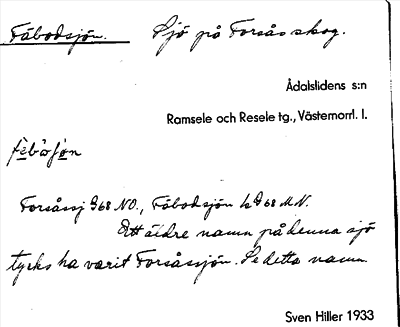 Fäbodsjön. Sjö på Forsås skog.
Ådalslidens s:n
Ramsele och Resele tg., Västernorrl. l.
Forsåssj G68 NO., Fäbodsjön k G68 MN.
Ett äldre namn på denna sjö
tycks ha varit Forsåssjön. Se detta namn.
Sven Hiller 1933